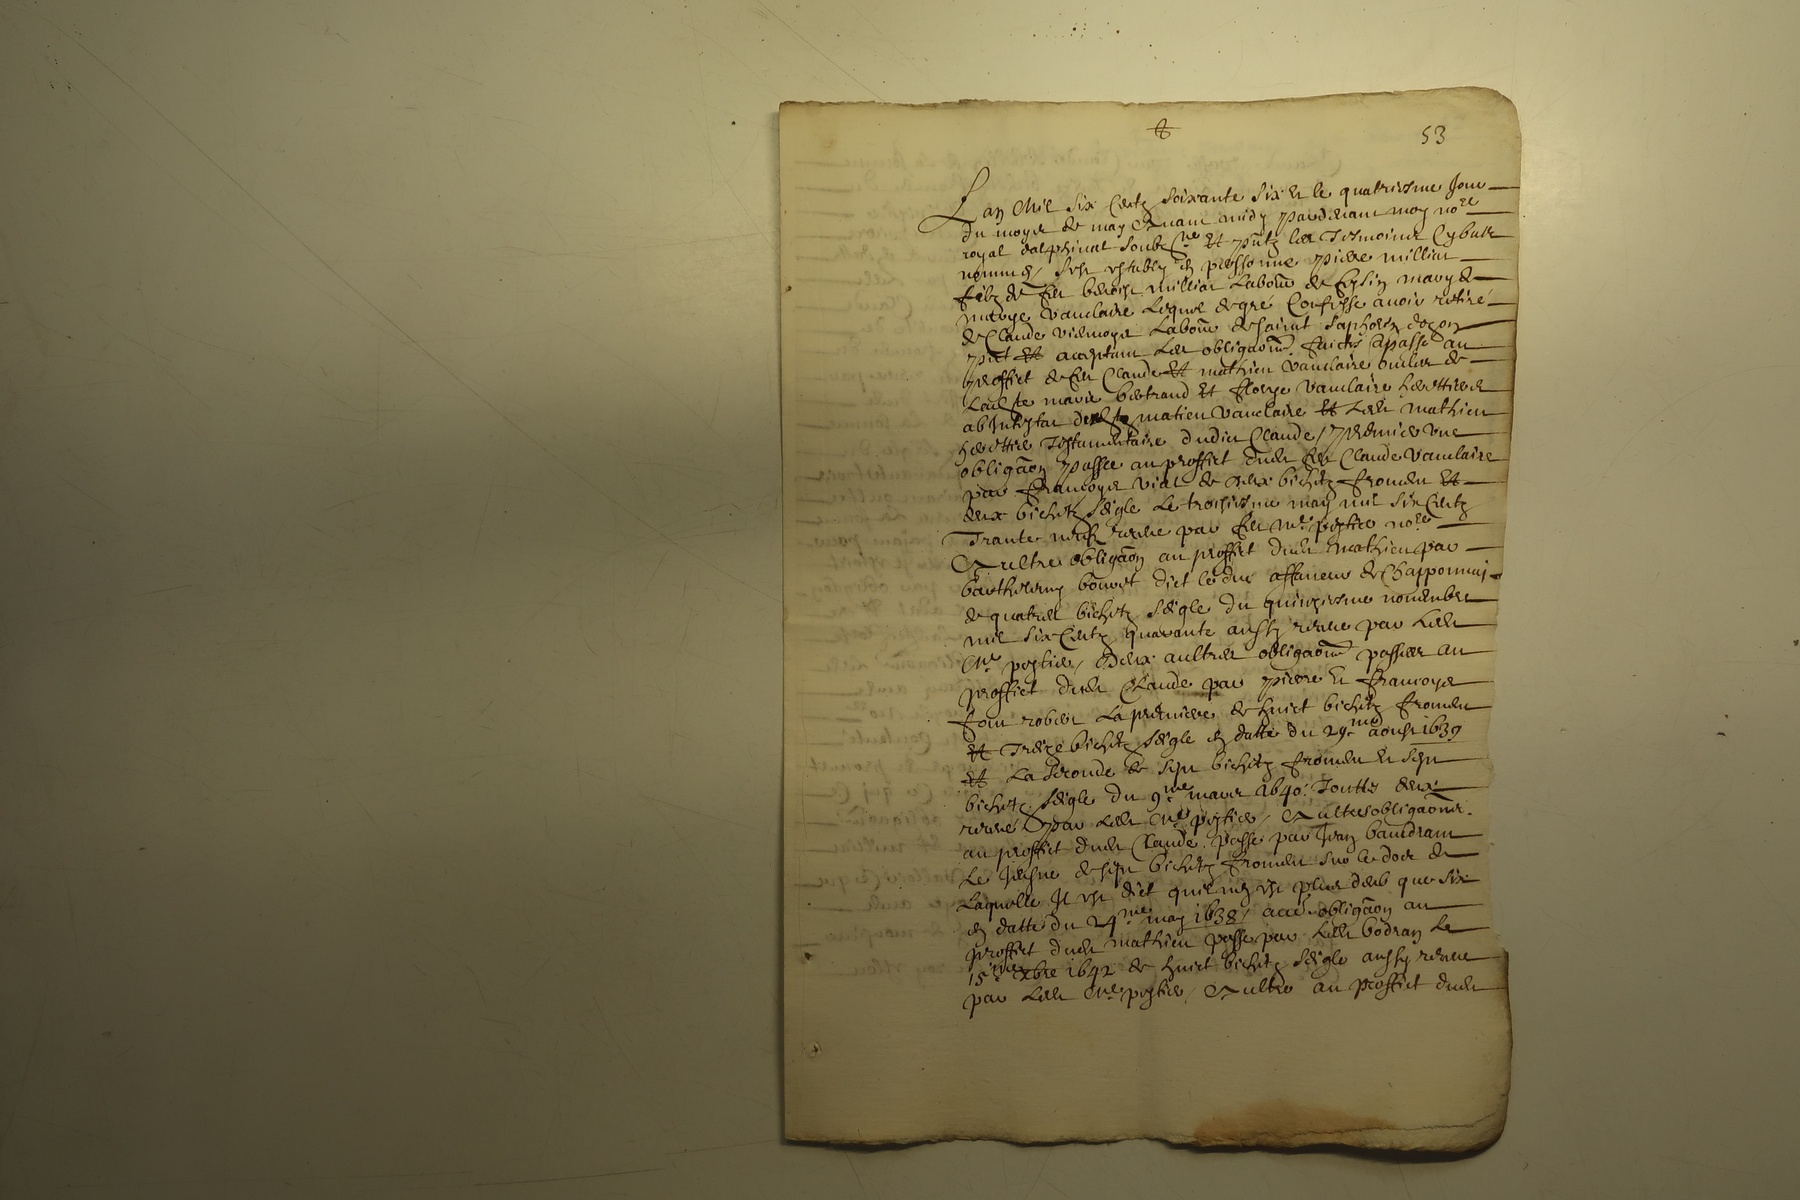 53
Lan Mil six Centz soixante six et le quatriesme Jour
du moys de may Auant midy pardeuant moy no.re
royal dalphinal soubz.ne et pntz les Tesmoins Cybatz
nommes / sest estably en personne pierre milliat
filz de feu benoist milliat Labour de mary de
vauclaire Lequel de gré Confesse auoir retiré
de Claude viemoys Labour de saint saphorin dozon
pnt et acceptant Les obligaons faictz passé au
proffict de feu Claude et mathieu vauclaire de
marie bertrand et vauclaire heritiers
abintestat matieu vauclaire et Led mathieu
heritier Testamentaire dudit Claude / premier vne
obligaon passee au proffict dud feu Claude Vauclaire
par francoys vial de deux bichetz froment et
deux bichetz seigle Le troisiesme may mil six Centz
Trante neufz receue par feu M.e no.re
Aultre obligaon au proffict dud mathieu par
barthelemy bouvet dict affaneur de Chapponnaj
de quatres bichetz seigle du quinziesme nouembre
mil six Centz quarante aussy receue par Led
M.e / Deux aultres obligaons passees au
proffict dud Claude par pierre et francoys
robert La premiere de huict bichetz froment
et Treize bichetz seigle en datte du 29.me aoust 1639
et La seconde de sept bichetz froment et sept
bichetz seigle du 9.me mars 1640. Touttes deux
receue par Led M.e / Aultres obligaons
au proffict dud Claude passe par Jean baudrant
Le Jeusne de sept bichetz froment sur le dos de
Laquelle Il est dict quil nen est plus deub que six
en datte du 24.me may 1638 / obligaon au
proffict dud mathieu passe par Led bodran Le
15.me xbre 1642 de huict bichetz seigle aussy receue
par Led M.e / Aultre au proffict dud